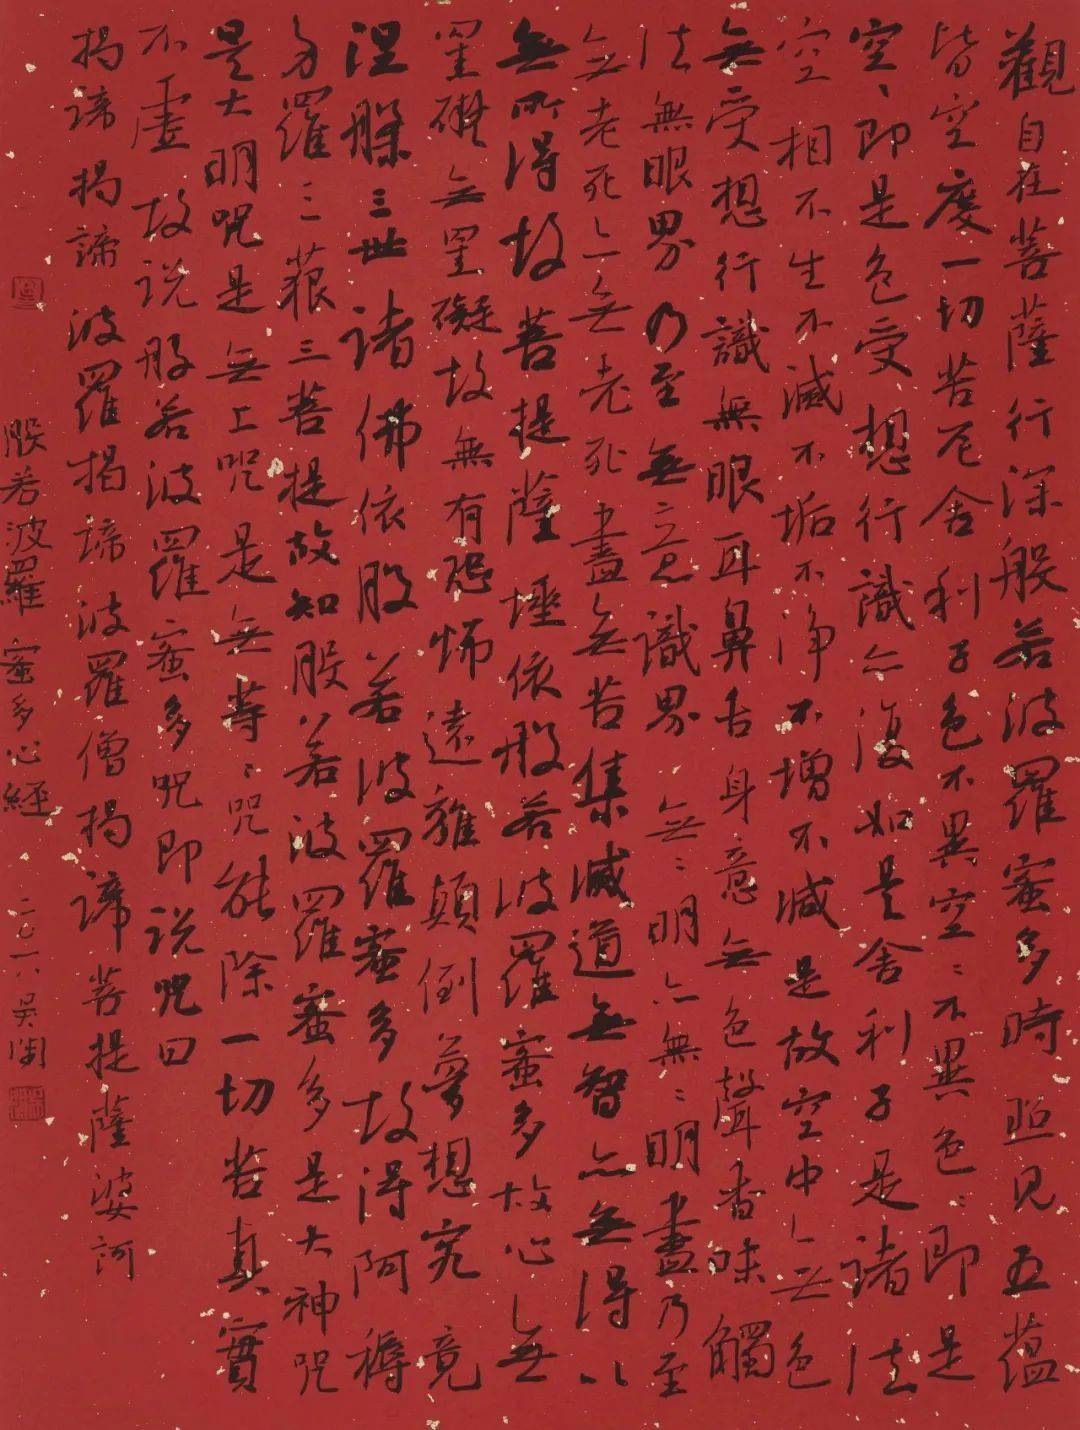 觀自在菩薩行深般若波羅蜜多時照見五蘊
皆空度一切苦厄舍利子色不異空〻不異色〻即是
空〻即是色受想行識亦復如是舍利子是諸法
空相不生不滅不垢不淨不增不減是故空中無色
無受想行識無眼耳鼻舌身意無色聲香味觸
法無眼界乃至無意識界無〻明亦無〻明盡乃至
無老死亦無老死盡無苦集滅道無智亦無得以
無所得故菩提薩埵依般若波羅蜜多故心無
罣礙無罣礙故無有恐怖遠離顛倒夢想究竟
涅槃三世諸佛依般若波羅蜜多故得阿耨
多羅三藐三菩提故知般若波羅蜜多是大神咒
是大明咒是無上咒是無等〻咒能除一切苦真實
不虛故說般若波羅蜜多咒即說咒曰
揭諦揭諦波羅揭諦波羅僧揭諦菩提薩婆訶
般若波羅蜜多心經 二〇一八 吳